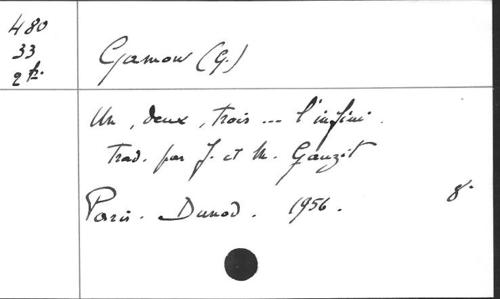 480
33
2 fr.
Gamow (G.)
Un, deux, trois ... l'infini.
Trad. par J. et M. Gauzit
Paris. Dunod. 1956. 8°